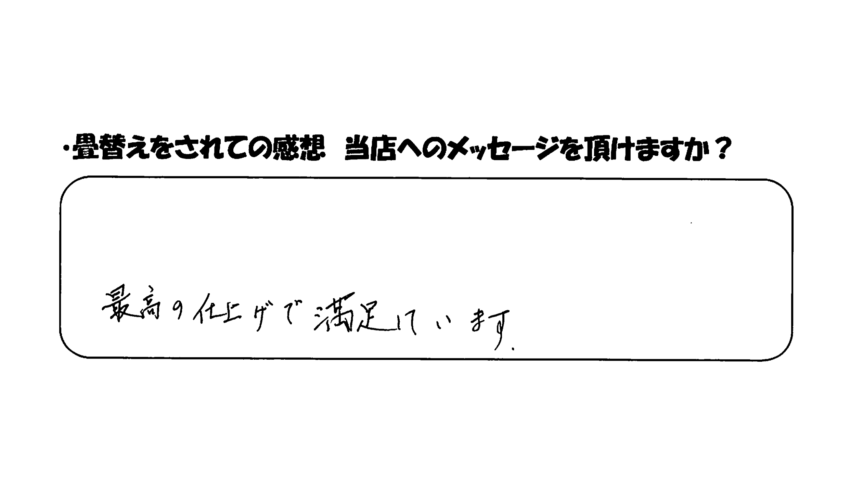 ・畳替えをされての感想 当店へのメッセージを頂けますか？
最高の仕上げで満足しています.